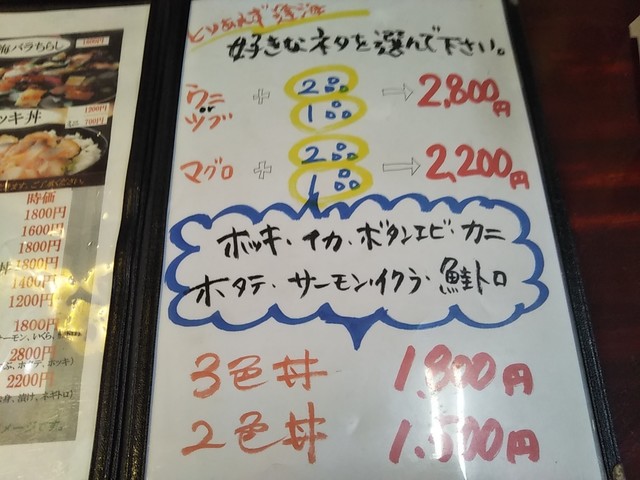 海バラちらし 1800円
ッキ丼 1200円
700円
時価
1800円
1600円
1800円
丼 1800円
1400円
1200円
1800円
ーモン、いくら、
2800円
ぶ、ホタテ、ホッキ)
2200円
身、漬け、ネギトロ)
メージです。
とりあえず
好きなネタを選んで下さい。
ウニ + 2品 ⇨ 2,800円
or
ツブ 1品
マグロ + 2品 ⇨ 2,200円
1品
ホッキ・イカ・ボタンエビ・カニ
ホタテ・サーモン・イクラ・鮭トロ
3色丼 1,800円
2色丼 1,500円